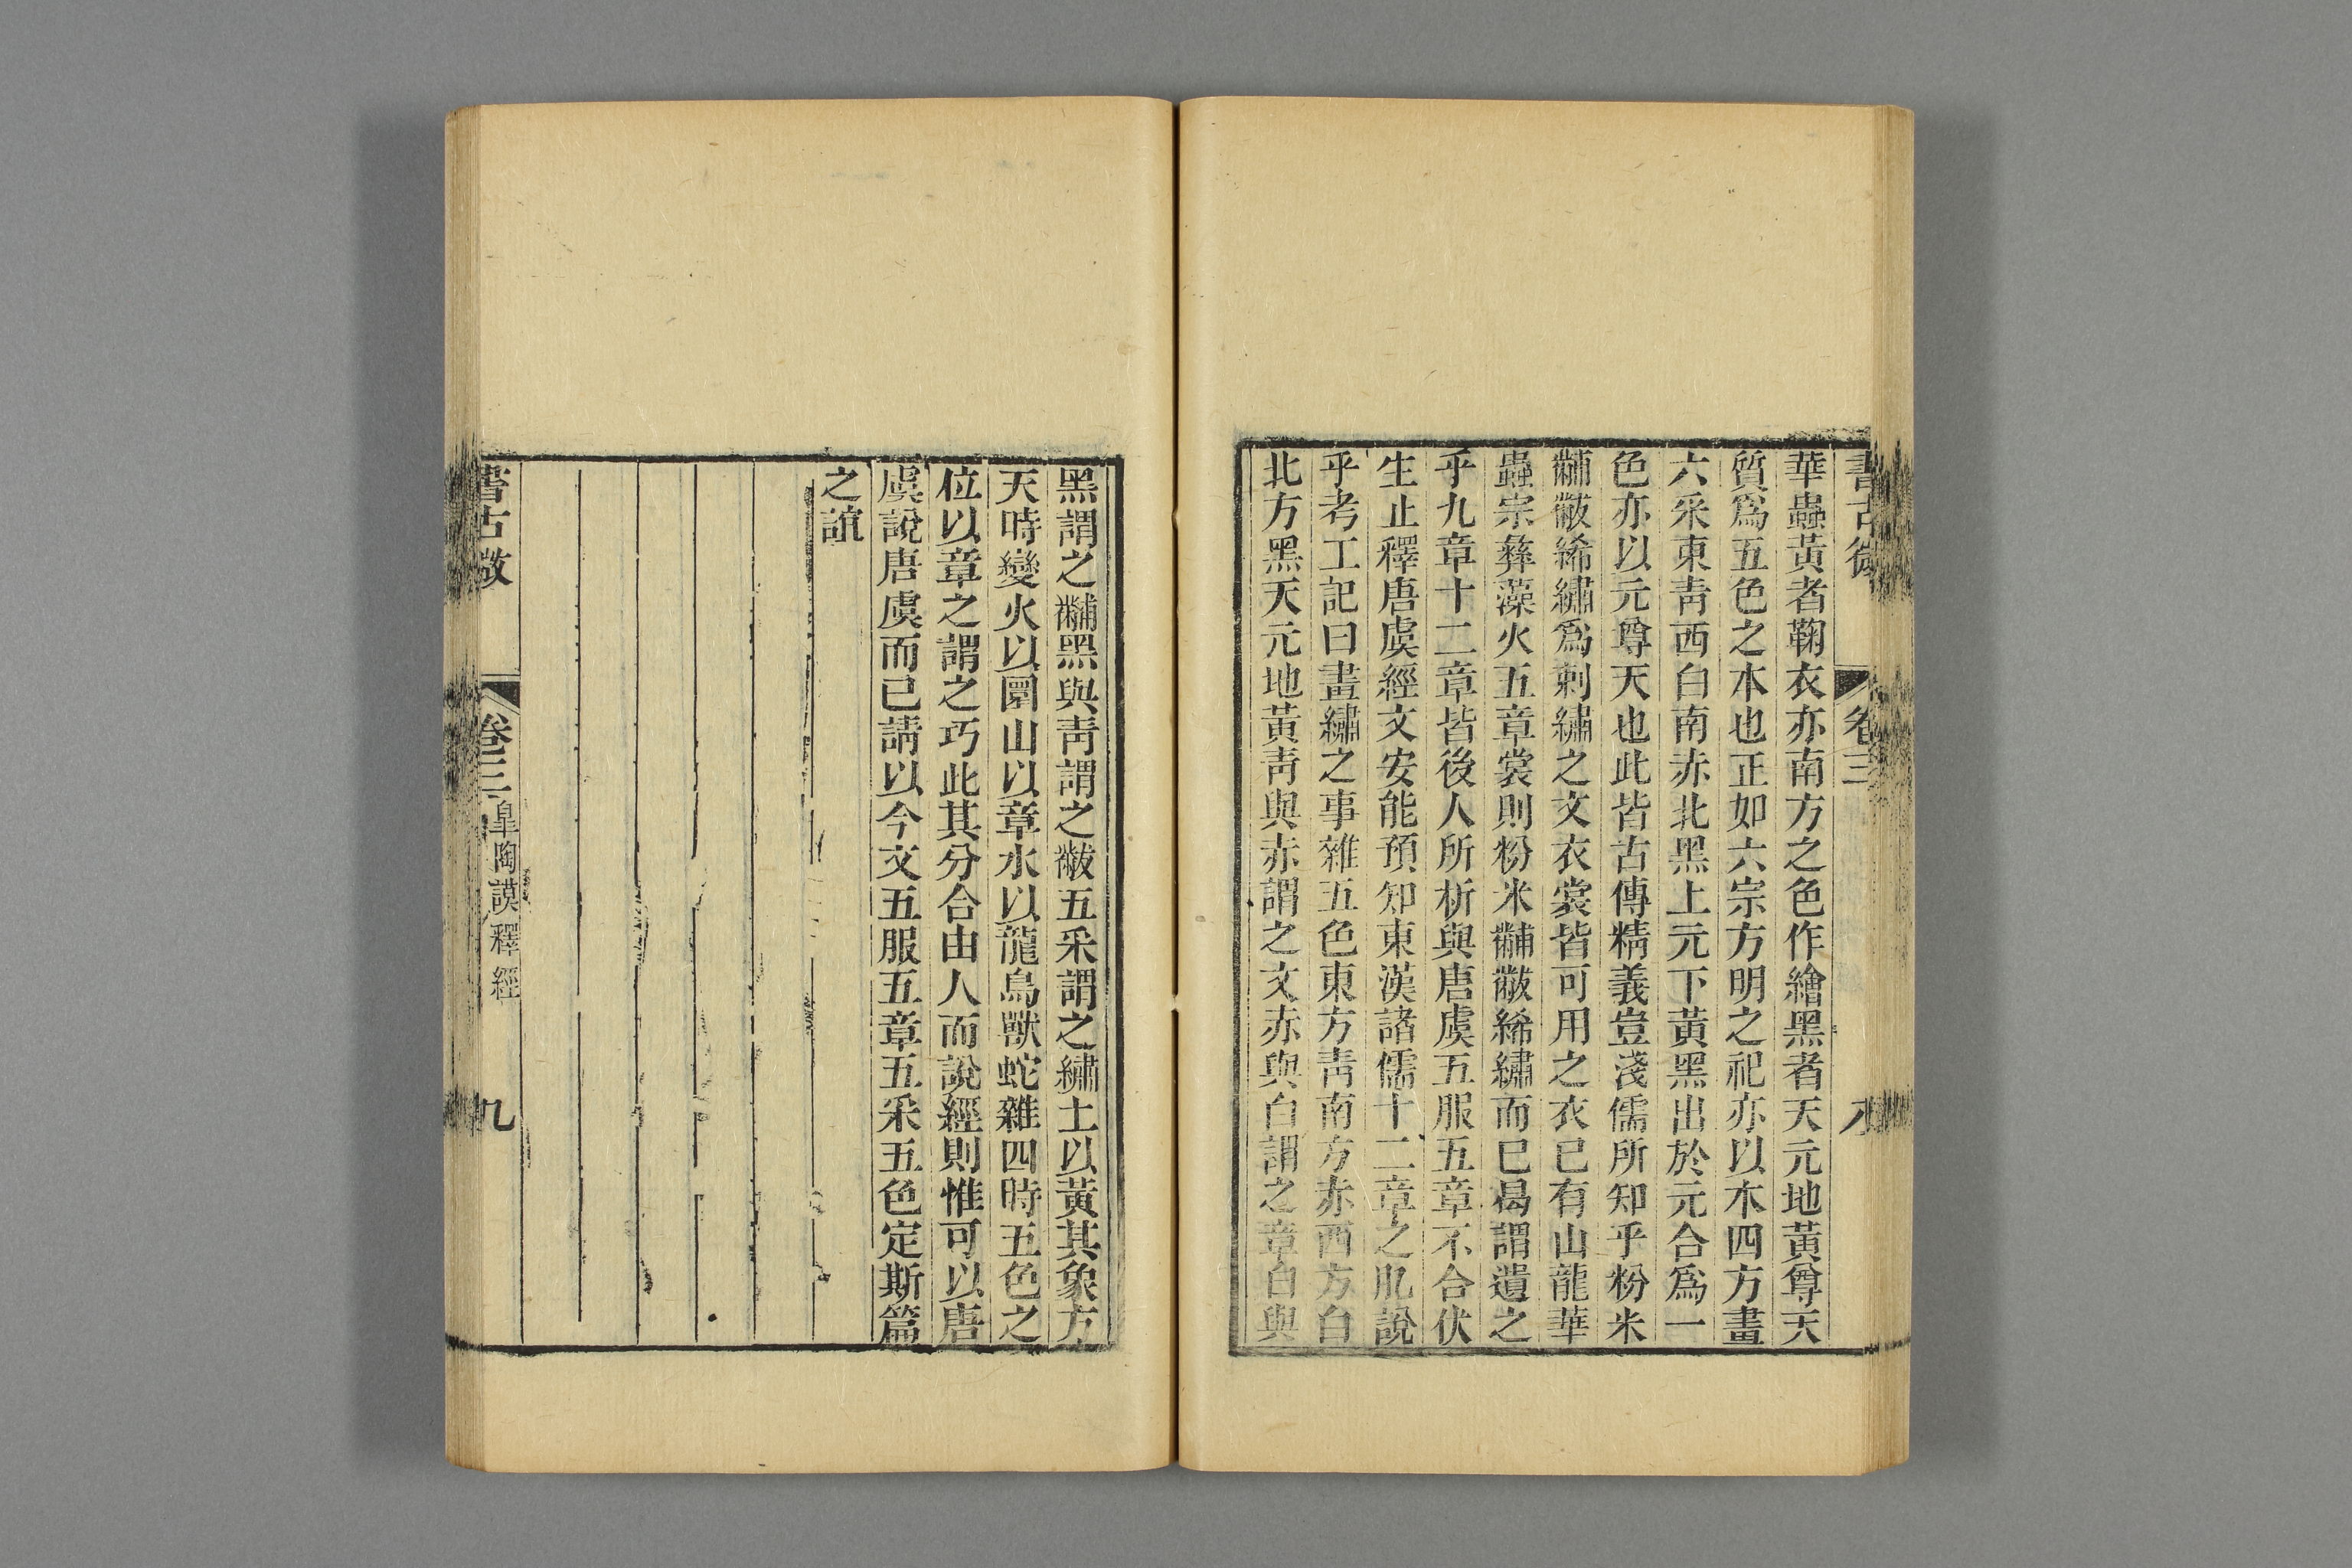 書古微 卷三 八
華蟲黃者鞠衣亦南方之色作繪黑者天元地黃尊天
質爲五色之本也正如六宗方明之祀亦以木四方畫
六采東靑西白南赤北黑上元下黃黑出於元合爲一
色亦以元尊天也此皆古傳精義豈淺儒所知乎粉米
黼黻絺繡爲刺繡之文衣裳皆可用之衣已有山龍華
蟲宗彝藻火五章裳則粉米黼黻絺繡而已曷謂遺之
乎九章十二章皆後人所析與唐虞五服五章不合伏
生止釋唐虞經文安能預知東漢諸儒十二章之肊說
乎考工記曰畫繡之事雜五色東方靑南方赤西方白
北方黑天元地黃靑與赤謂之文赤與白謂之章白與
黑謂之黼黑與靑謂之黻五采謂之繡土以黃其象方
天時變火以圜山以章水以龍鳥獸蛇雜四時五色之
位以章之謂之巧此其分合由人而說經則惟可以唐
虞說唐虞而已請以今文五服五章五采五色定斯篇
之誼
書古微 卷三 皐陶謨釋經 九